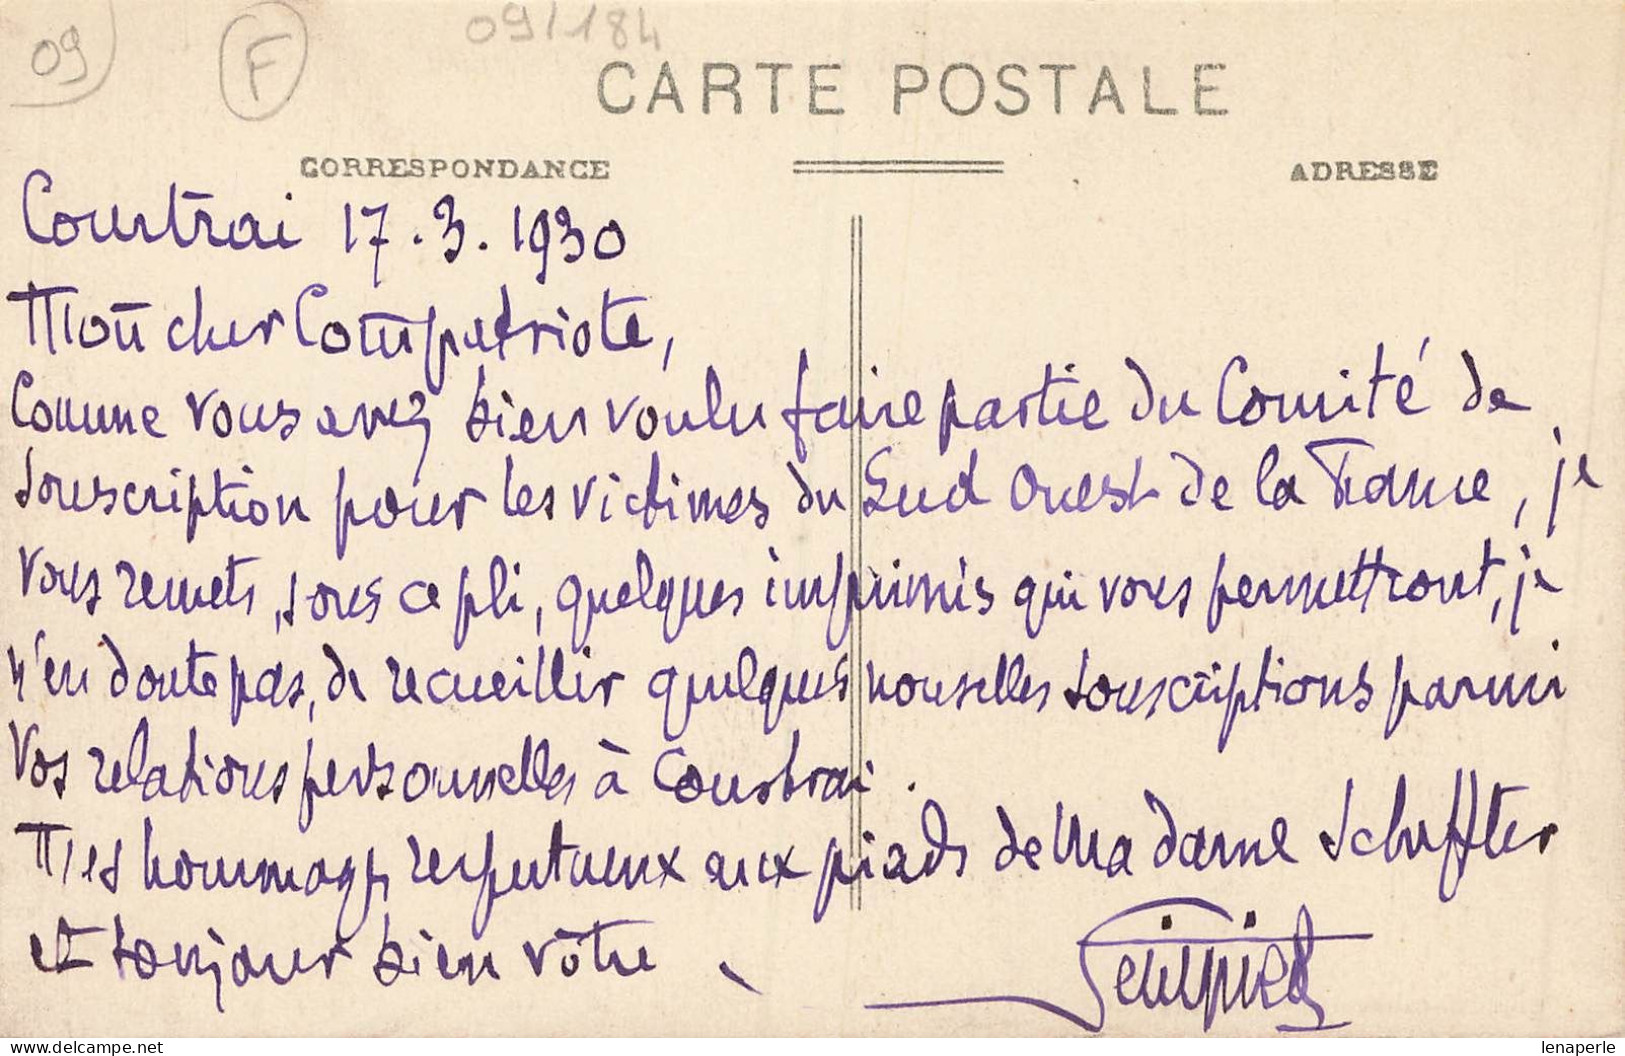 09
F
09/184
CARTE POSTALE
CORRESPONDANCE
ADRESSE
Courtrai 17.3.1930
Mon cher Compatriote,
Comme vous avez bien voulu faire partie du Comité de
souscription pour les victimes du Sud Ouest de la France, je
vous remets, sous ce pli, quelques imprimés qui vous permettront, je
n'en doute pas, de recueillir quelques nouvelles souscriptions parmi
vos relations personnelles à Courtrai.
Mes hommages respectueux aux pieds de Madame Schuffler
et toujours bien vôtre
lenaperle
www.delcampe.net